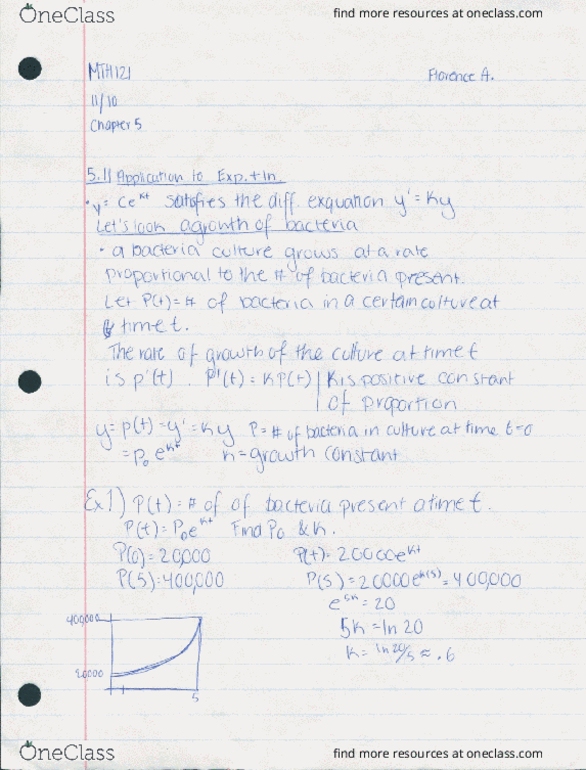 OneClass find more resources at oneclass.com
MTH121 Florence A.
11/10
Chapter 5
5.1| Application to Exp. + ln.
• y = Ce^kt satisfies the diff. exquation y' = Ky
Let's look agrowth of bacteria
• a bacteria culture grows at a rate
proportional to the # of bacteria present.
Let P(t) = # of bacteria in a certain culture at
time t.
The rate of growth of the culture at time t
is p'(t). P'(t) = KP(t) | K is positive constant
of proportion
y = p(t) = y' = Ky P = # of bacteria in culture at time t=0
= P₀ e^kt K = growth constant
Ex 1) P(t) = # of of bacteria present a time t.
P(t) = P₀e^kt Find P₀ & K.
P(0) = 20,000 P(t) = 20000e^kt
P(5) = 400,000 P(5) = 20000e^k(5) = 400,000
e^5k = 20
400,000 5K = ln 20
K = ln 20/5 ≈ .6
20000
5
OneClass find more resources at oneclass.com